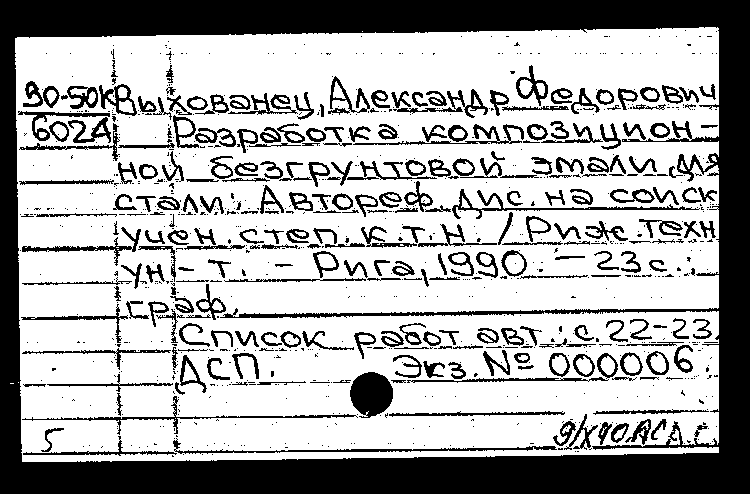 90-50К Выхованец, Александр Федорович
602А Разработка композицион-
ной безгрунтовой эмали для
стали: Автореф. дис. на соиск
учен. степ. к.т.н. / Риж. техн
ун-т. - Рига, 1990. - 23 с.:
граф.
Список работ авт.: с. 22-23.
ДСП. Экз. № 000006.
5